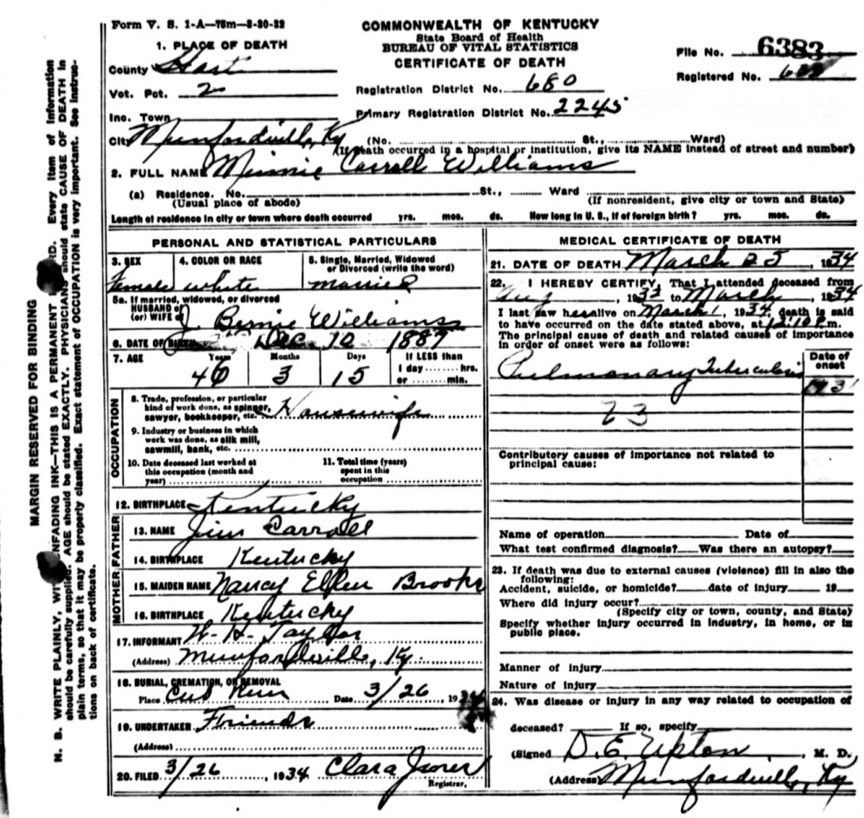 Form V. S. 1-A—75m—8-30-32
COMMONWEALTH OF KENTUCKY
State Board of Health
BUREAU OF VITAL STATISTICS
CERTIFICATE OF DEATH
1. PLACE OF DEATH
File No. 6383
County Hart
Registered No.
Vot. Pct. 2
Registration District No. 680
Inc. Town
Primary Registration District No. 2245
City Munfordville, Ky (No. St., Ward)
(If death occurred in a hospital or institution, give its NAME instead of street and number)
2. FULL NAME Minnie Carroll Williams
(a) Residence. No. St., Ward
(Usual place of abode) (If nonresident, give city or town and State)
Length of residence in city or town where death occurred yrs. mos. ds. How long in U. S., if of foreign birth? yrs. mos. ds.
PERSONAL AND STATISTICAL PARTICULARS
3. SEX 4. COLOR OR RACE 5. Single, Married, Widowed
or Divorced (write the word)
female white married
5a. If married, widowed, or divorced
HUSBAND of
(or) WIFE of J. Bernie Williams
6. DATE OF BIRTH Dec 10 1887
7. AGE Years Months Days If LESS than
1 day hrs.
46 3 15 or min.
OCCUPATION
8. Trade, profession, or particular
kind of work done, as spinner,
sawyer, bookkeeper, etc. Housewife
9. Industry or business in which
work was done, as silk mill,
sawmill, bank, etc.
10. Date deceased last worked at
this occupation (month and
year)
11. Total time (years)
spent in this
occupation
12. BIRTHPLACE Kentucky
FATHER
13. NAME Jim Carroll
14. BIRTHPLACE Kentucky
MOTHER
15. MAIDEN NAME Nancy Ellen Brooks
16. BIRTHPLACE Kentucky
17. INFORMANT W. H. Taylor
(Address) Munfordville, Ky.
18. BURIAL, CREMATION, OR REMOVAL
Place Cub Run Date 3/26 1934
19. UNDERTAKER Friends
(Address)
20. FILED 3/26, 1934 Clara Jones
Registrar.
MEDICAL CERTIFICATE OF DEATH
21. DATE OF DEATH March 25, 1934
22. I HEREBY CERTIFY, That I attended deceased from
Aug, 1933 to March, 1934
I last saw her alive on March 1, 1934, death is said
to have occurred on the date stated above, at 12:10 P.m.
The principal cause of death and related causes of importance
in order of onset were as follows:
Date of
onset
Pulmonary Tuberculosis
23
Contributory causes of importance not related to
principal cause:
Name of operation Date of
What test confirmed diagnosis? Was there an autopsy?
23. If death was due to external causes (violence) fill in also the
following:
Accident, suicide, or homicide? date of injury 19
Where did injury occur?
(Specify city or town, county, and State)
Specify whether injury occurred in industry, in home, or in
public place.
Manner of injury
Nature of injury
24. Was disease or injury in any way related to occupation of
deceased? If so, specify
(Signed D. E. Upton, M. D.
(Address) Munfordville, Ky
MARGIN RESERVED FOR BINDING
N. B. WRITE PLAINLY, WITH UNFADING INK—THIS IS A PERMANENT RECORD. Every item of information
should be carefully supplied. AGE should be stated EXACTLY. PHYSICIANS should state CAUSE OF DEATH in
plain terms, so that it may be properly classified. Exact statement of OCCUPATION is very important. See instruc-
tions on back of certificate.